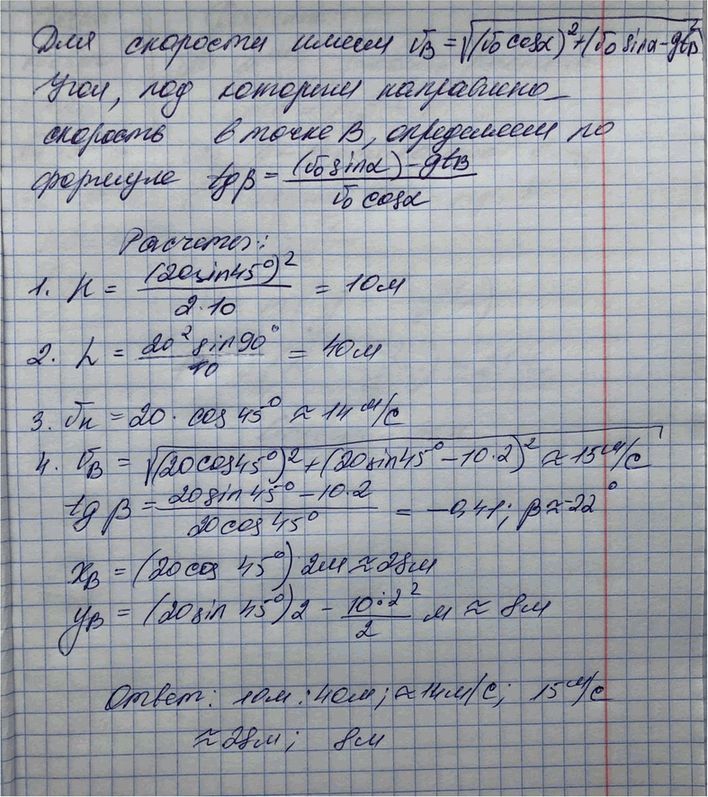 Для скорости имеем v_B = √((v₀ cosα)² + (v₀ sinα - gt_B)²)
Угол, под которым направлено
скорость в точке B, определяем по
формуле tgβ = ((v₀ sinα) - gt_B) / (v₀ cosα)
Расчеты:
1. H = (20 sin 45°)² / (2·10) = 10м
2. L = 20² sin 90° / 10 = 40м
3. v_н = 20 · cos 45° ≈ 14 м/с
4. v_B = √((20 cos 45°)² + (20 sin 45° - 10·2)²) ≈ 15 м/с
tg β = (20 sin 45° - 10·2) / (20 cos 45°) = -0,41; β ≈ -22°
x_B = (20 cos 45°) 2м ≈ 28м
y_B = (20 sin 45°) 2 - (10·2²) / 2 м ≈ 8м
Ответ: 10м; 40м; ≈14м/с; 15 м/с
≈28м; 8м